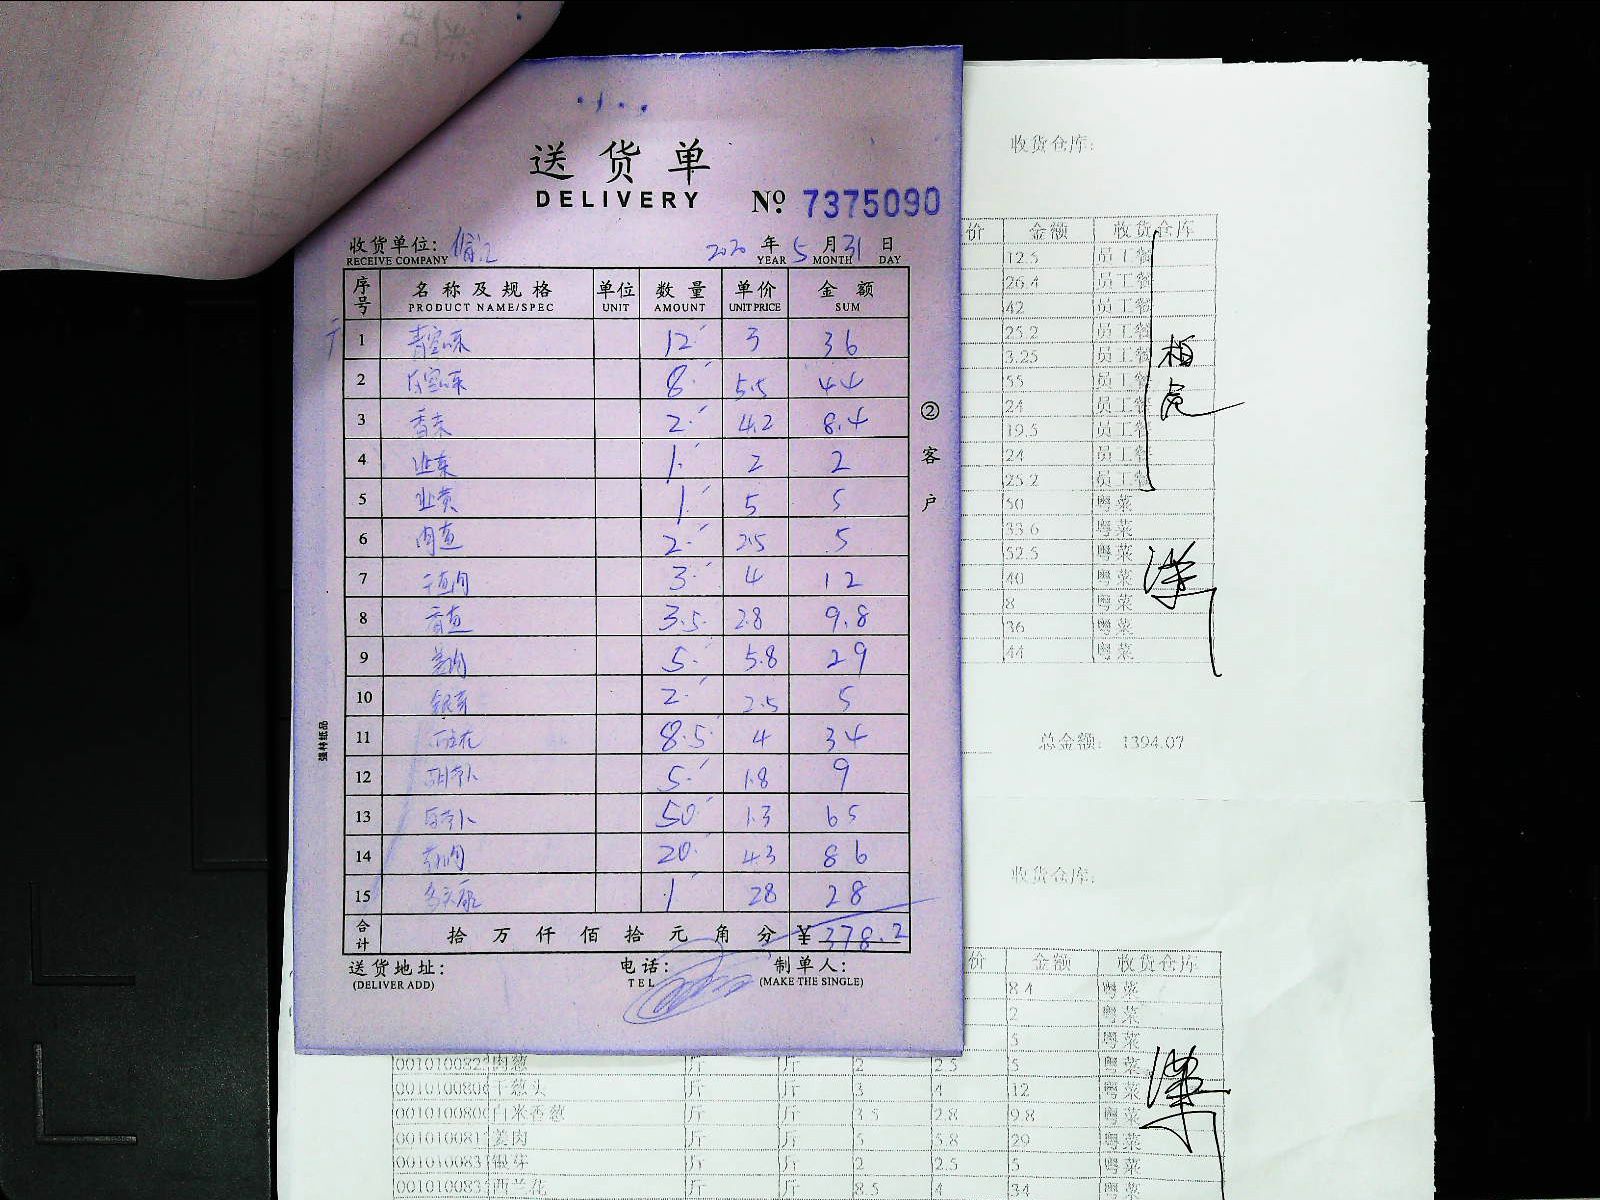 送货单
DELIVERY
Nº 7375090
收货单位:
RECEIVE COMPANY
2020 年 5 月 31 日
YEAR MONTH DAY
序号 名称及规格 单位 数量 单价 金额
PRODUCT NAME/SPEC UNIT AMOUNT UNIT PRICE SUM
1 12 3 36
2 8 5.5 44
3 香菜 2 4.2 8.4
4 韭菜 1 2 2
5 韭黄 1 5 5
6 肉葱 2 2.5 5
7 干葱肉 3 4 12
8 香葱 3.5 2.8 9.8
9 姜肉 5 5.8 29
10 银芽 2 2.5 5
11 西兰花 8.5 4 34
12 5 1.8 9
13 50 1.3 65
14 20 4.3 86
15 1 28 28
合计 拾 万 仟 佰 拾 元 角 分 ¥378.2
送货地址: 电话: 制单人:
(DELIVER ADD) TEL (MAKE THE SINGLE)
②客户
强林纸品
收货仓库:
价 金额 收货仓库
12.5 员工餐
26.4 员工餐
42 员工餐
25.2 员工餐
3.25 员工餐
55 员工餐
24 员工餐
19.5 员工餐
24 员工餐
25.2 员工餐
50 粤菜
33.6 粤菜
52.5 粤菜
40 粤菜
8 粤菜
36 粤菜
44 粤菜
总金额: 1394.07
收货仓库:
价 金额 收货仓库
8.4 粤菜
2 粤菜
5 粤菜
001010082 肉葱 斤 斤 2 2.5 5 粤菜
001010080 干葱头 斤 斤 3 4 12 粤菜
001010080 白米香葱 斤 斤 3.5 2.8 9.8 粤菜
001010081 姜肉 斤 斤 5 5.8 29 粤菜
001010083 银芽 斤 斤 2 2.5 5 粤菜
001010083 西兰花 斤 斤 8.5 4 34 粤菜